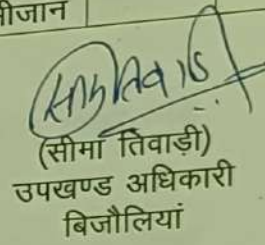 मीजान
सीमा तिवाड़ी
(सीमा तिवाड़ी)
उपखण्ड अधिकारी
बिजौलियां